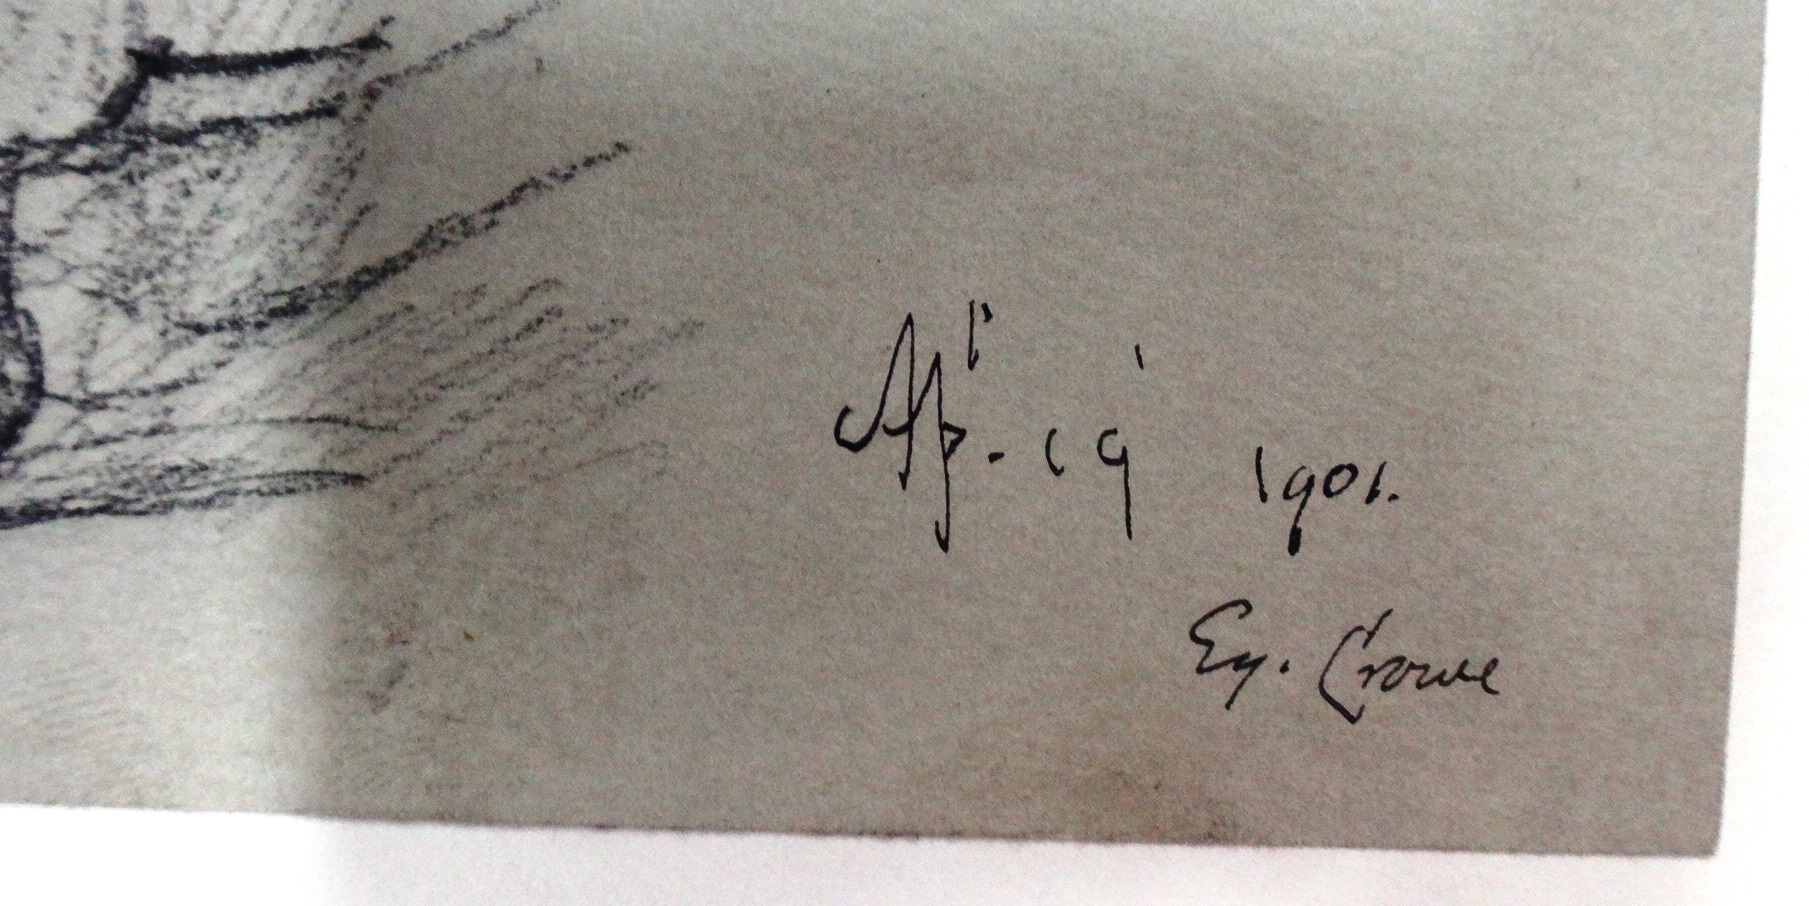 Apl. 19 1901.
Ey. Crowe